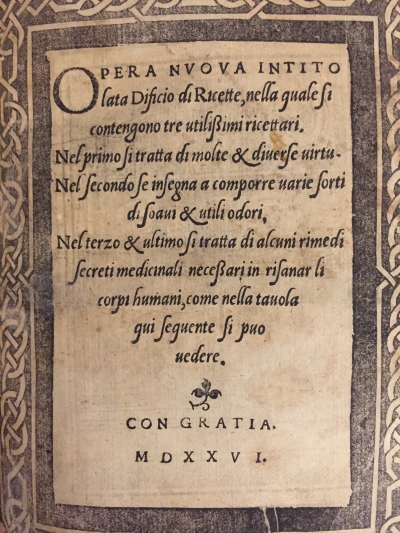 OPERA NVOVA INTITO
lata Dificio di Ricette, nella quale si
contengono tre utilißimi ricettari.
Nel primo si tratta di molte & diuerse uirtu.
Nel secondo se insegna a comporre uarie sorti
di soaui & utili odori,
Nel terzo & ultimo si tratta di alcuni rimedi
secreti medicinali neceßari in risanar li
corpi humani, come nella tauola
qui sequente si puo
uedere.
CON GRATIA.
MDXXVI.